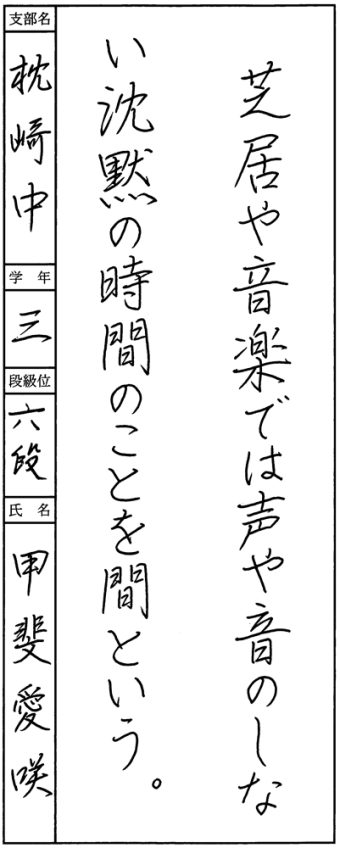 芝居や音楽では声や音のしな
い沈黙の時間のことを間という。
支部名
枕崎中
学年
三
段級位
六段
氏名
甲斐愛咲